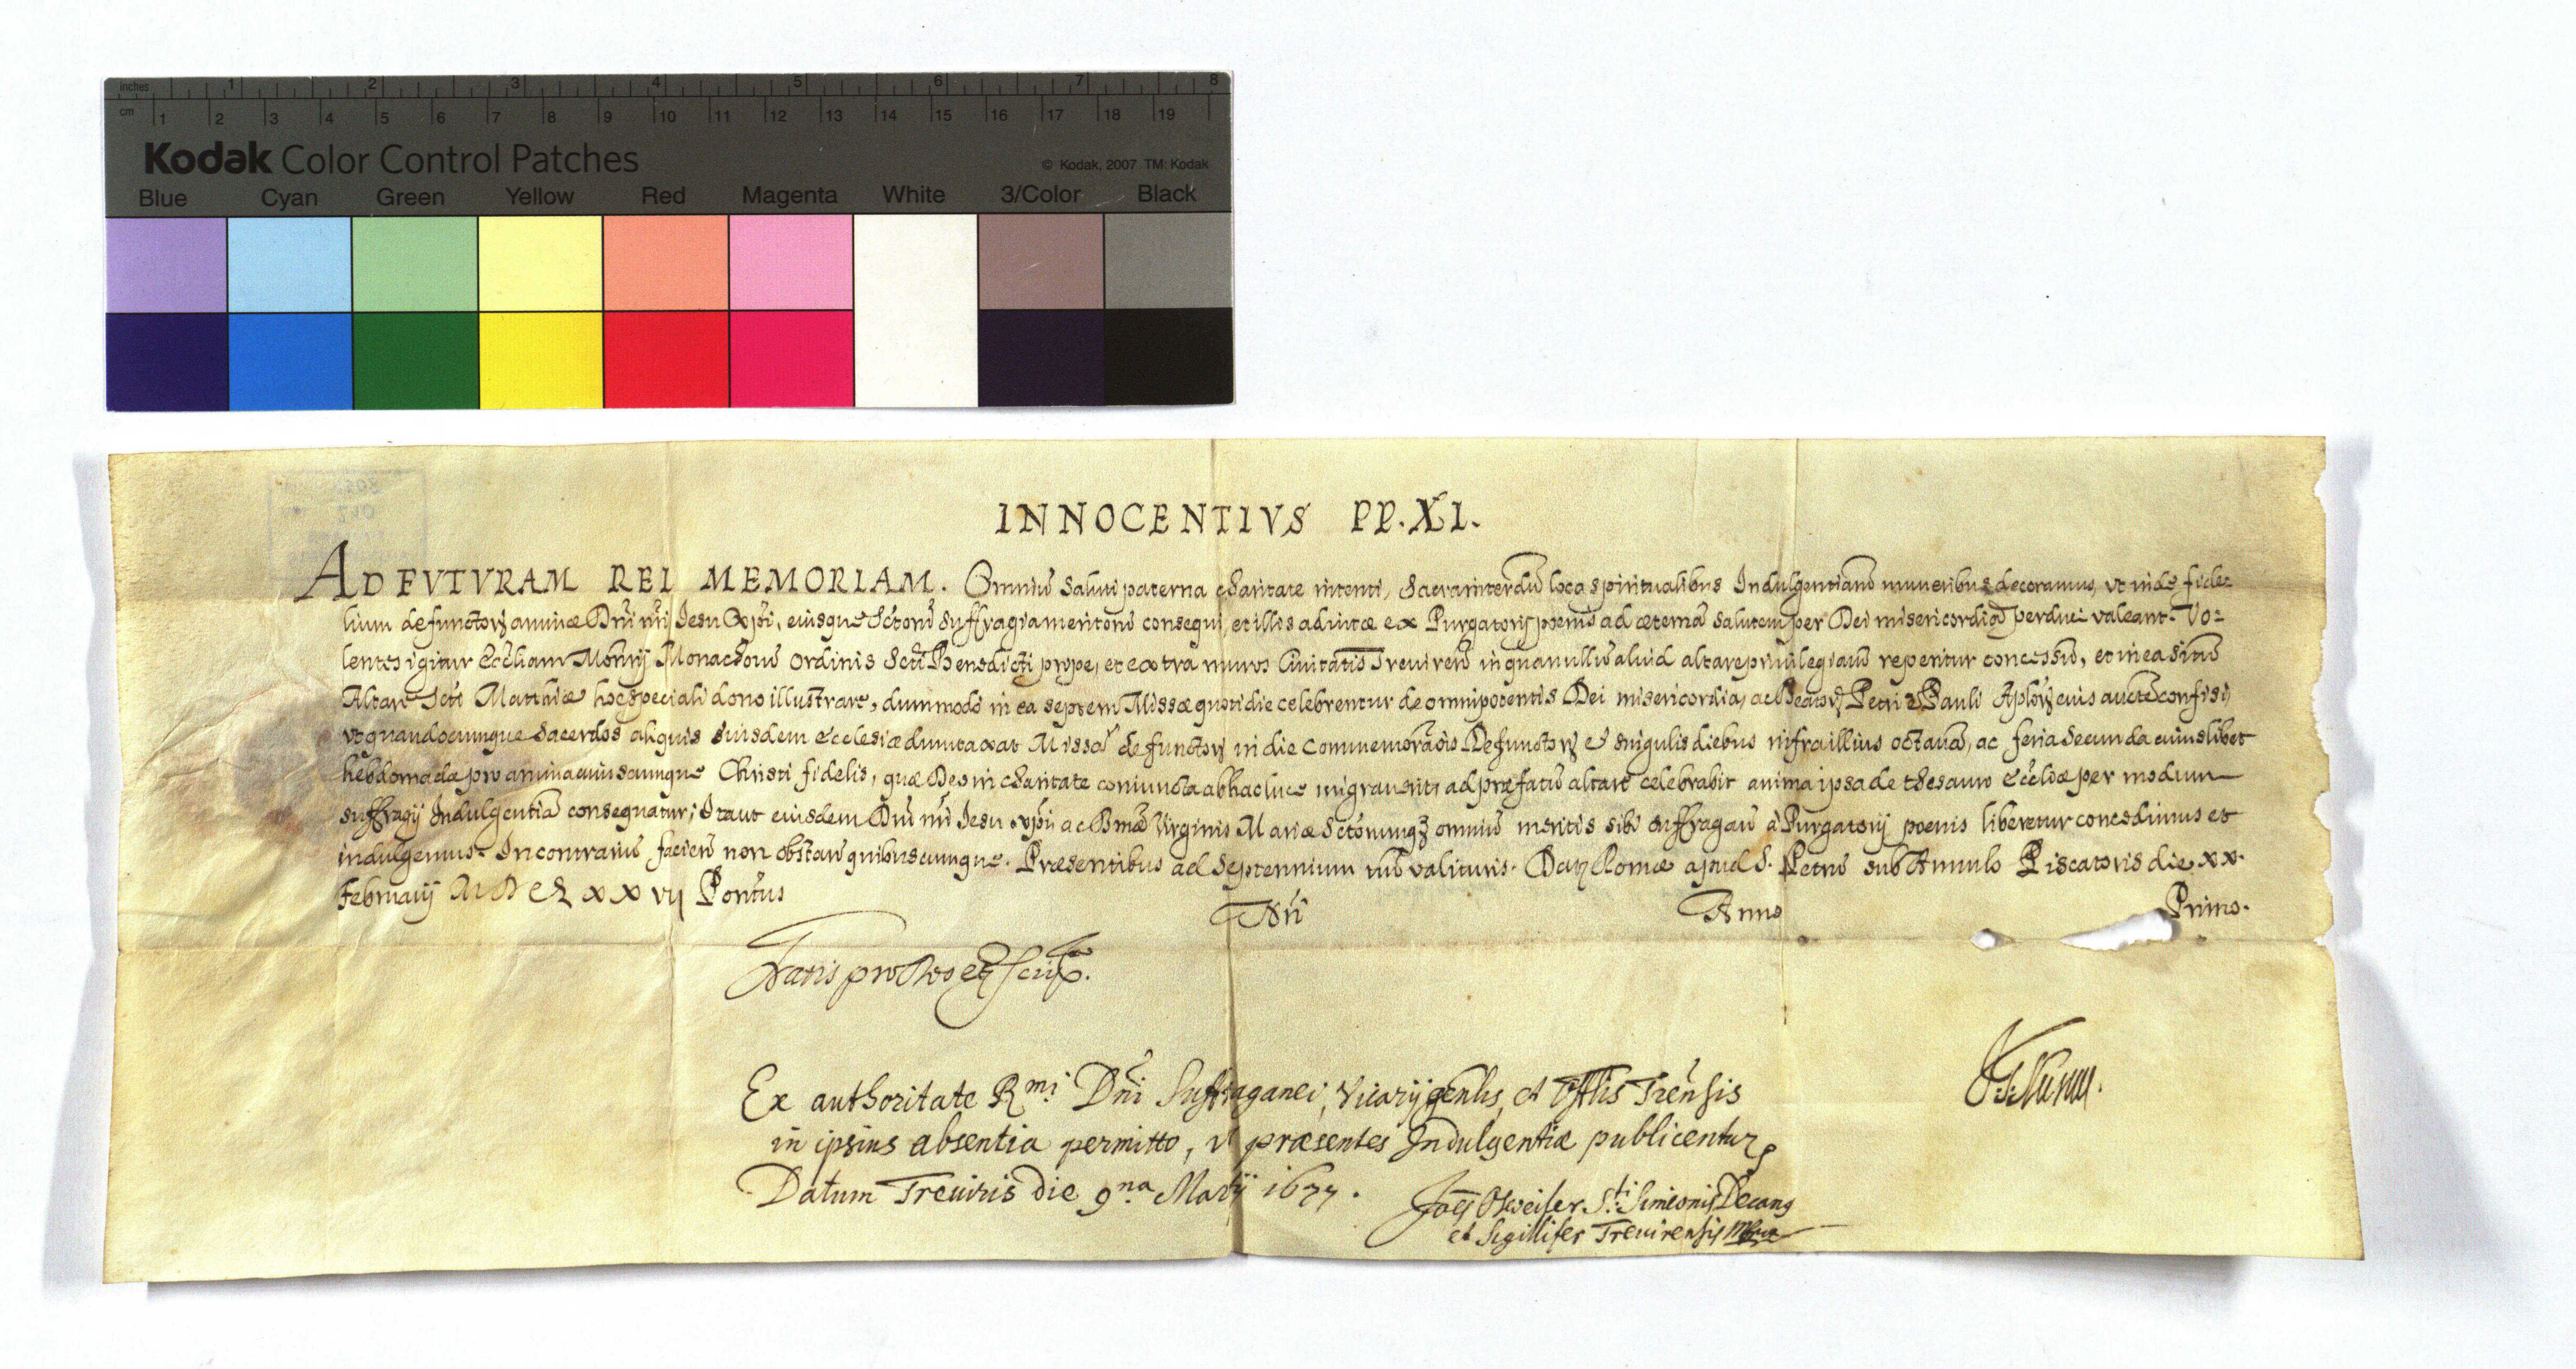 inches 1 2 3 4 5 6 7 8
cm 1 2 3 4 5 6 7 8 9 10 11 12 13 14 15 16 17 18 19
Kodak Color Control Patches © Kodak, 2007 TM: Kodak
Blue Cyan Green Yellow Red Magenta White 3/Color Black
INNOCENTIVS PP. XI.
AD FVTVRAM REI MEMORIAM. Omniū saluti paterna charitate intenti, sacra interdū loca spiritualibus Indulgentiarū muneribus decoramus, vt inde fide-
lium defunctorꝝ animæ Dñi nr̃i Jesu Xp̃i, eiusque Sctorū suffragia meritorū consequi, et illis adiutæ ex Purgatorij poenis ad æternā salutem per Dei misericordiā perduci valeant. Vo-
lentes igitur Eccliam Mon̄rij Monachorū ordinis Scti Benedicti prope, et extra muros Ciuitatis Treuireñ in qua nullū aliud altare priuilegiatū reperitur concessū, et in ea sitū
Altare Scti Matthiæ hoc speciali dono illustrare, dummodo in ea septem Missæ quotidie celebrentur de omnipotentis Dei misericordia, ac Beatorꝝ Petri et Pauli Aplorꝝ eius aucte confisi,
vt quandocumque sacerdos aliquis eiusdem Ecclesiæ dumtaxat Missā defunctorꝝ in die commemorãois Defunctorꝝ et singulis diebus infra illius octauā, ac feria secunda cuiuslibet
hebdomadæ pro anima cuiuscumque Christi fidelis, quæ Deo in charitate coniuncta ab hac luce migrauerit, ad præfatū altare celebrabit anima ipsa de thesauro Eccliæ per modum
suffragij Indulgentiā consequatur; Ita ut eiusdem Dñi nr̃i Jesu Xp̃i ac Bmæ Virginis Mariæ Sctorumqꝫ omniū meritis sibi suffragañ à Purgatorij poenis liberetur concedimus et
indulgemus. In contrariū facieñ non obstañ quibuscumque. Præsentibus ad Septennium tm̄ valituris. Datꝫ Romæ apud S. Petrū sub Annulo Piscatoris die xx.
Februarij MDCLXXVIJ Pontus Nr̃i Anno Primo.
Ex authoritate Rmi Dñi Suffraganei, Vicarij gen̄lis, et Offlis Treñsis
in ipsius absentia permitto, vt præsentes Indulgentiæ publicentur,
Datum Treuiris die 9na Maij 1677.
Sti Simeonis Decanꝰ
et Sigillifer Treuirensis mpria